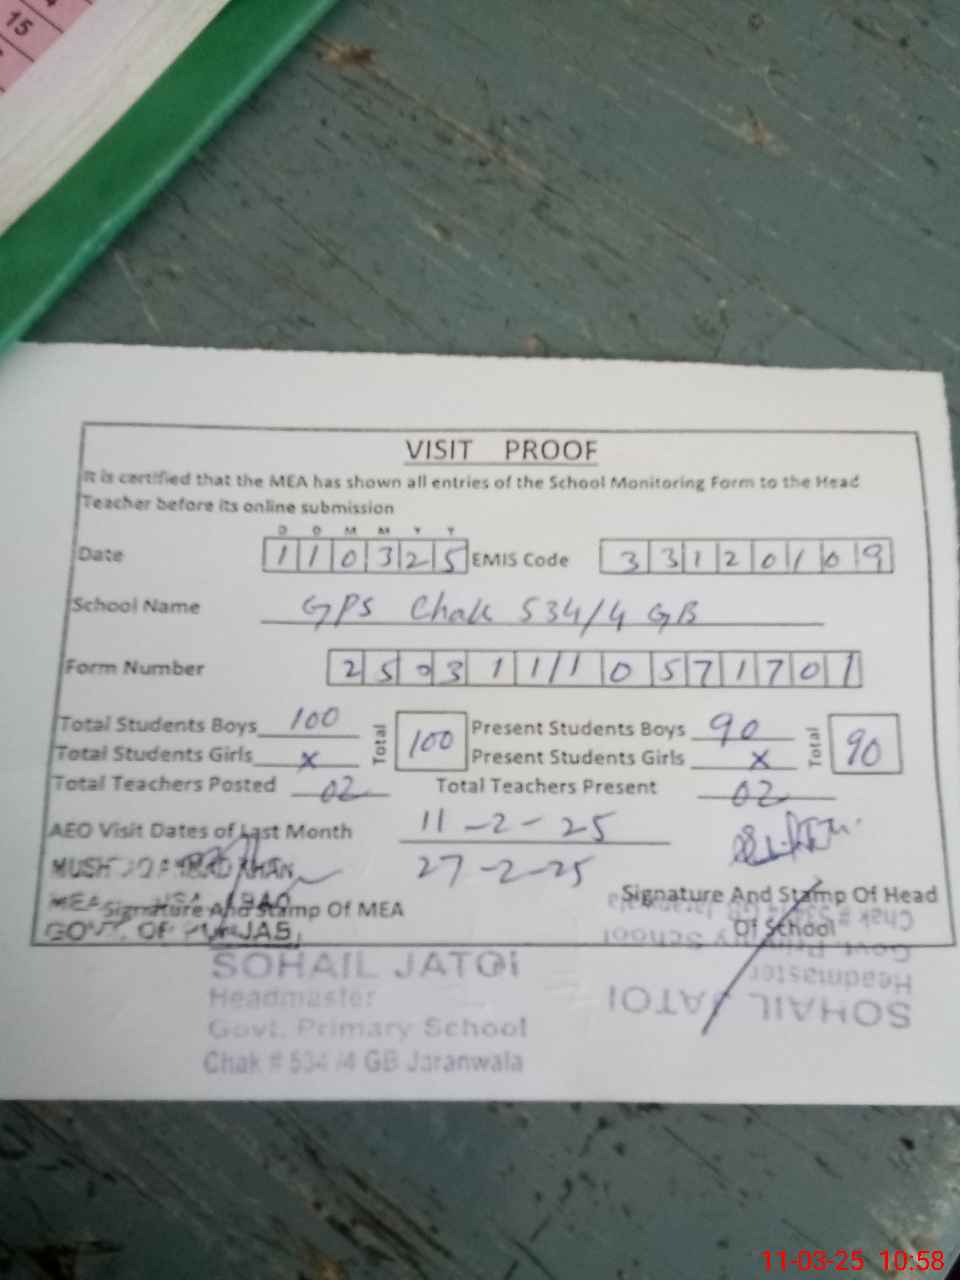 15
VISIT PROOF
It is certified that the MEA has shown all entries of the School Monitoring Form to the Head
Teacher before its online submission
D D M M Y Y
Date 110325 EMIS Code 33120109
School Name GPS Chak 534/4 GB
Form Number 250311110571701
Total Students Boys 100 Total 100 Present Students Boys 90 Total 90
Total Students Girls x Present Students Girls x
Total Teachers Posted 02 Total Teachers Present 02
AEO Visit Dates of Last Month 11-2-25
27-2-25
KHAN
MEA
Signature And Stamp Of MEA
Signature And Stamp Of Head
Of School
GOVT. OF PUNJAB
SOHAIL JATOI
Headmaster
Govt. Primary School
Chak # 534/4 GB Jaranwala
SOHAIL JATOI
Headmaster
Govt. Primary School
Chak # 534/4 GB Jaranwala
11-03-25 10:58